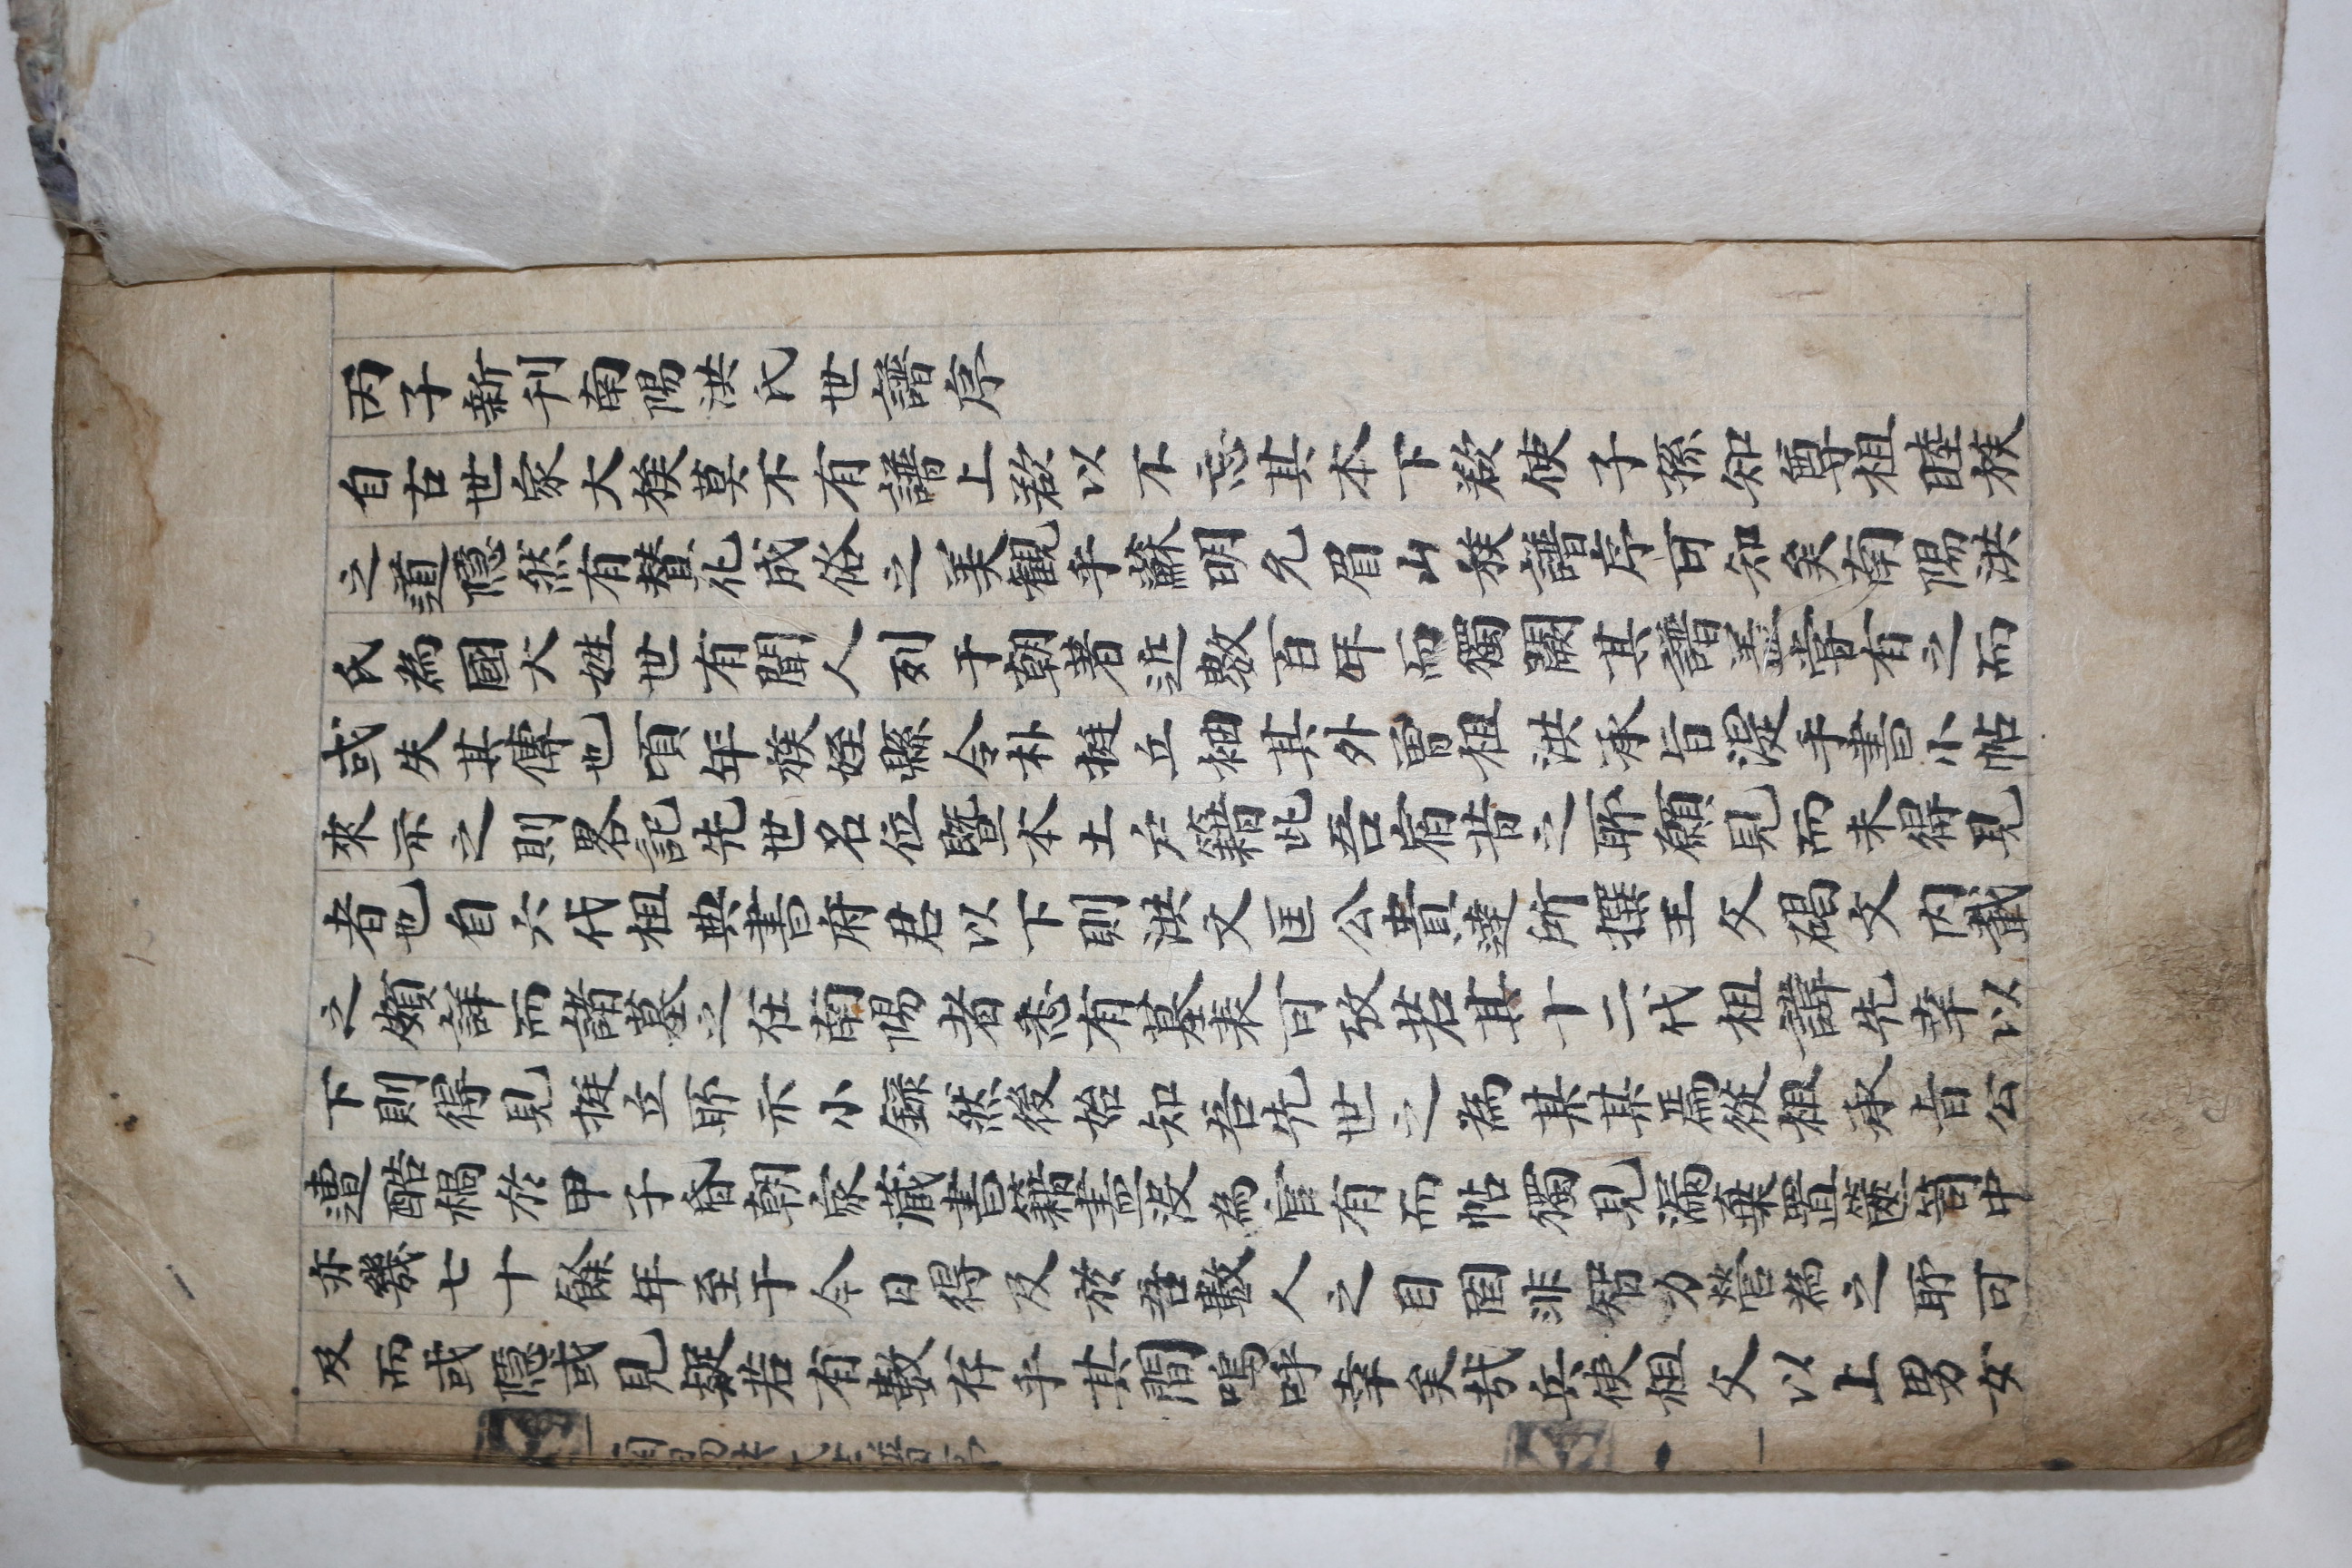 丙子新刊南陽洪氏世譜序
自古世家大族莫不有譜上欲以不忘其本下欲使子孫知尊祖睦族
之道隱然有賛化成俗之美觀乎蘇明允眉山族譜序可知矣南陽洪
氏為國大姓世有聞人列于朝著近數百年而獨闕其譜盖嘗有之而
或失其傳也頃年族姪縣令朴挺立袖其外曾祖洪承旨湜手書小帖
來示之則畧記先世名位暨本土戶籍此吾宿昔之所願見而未得見
者也自六代祖典書府君以下則洪文匡公貴達所撰王父碣文内載
之頗詳而諸墓之在南陽者悉有墓表可攷若其十二代祖諱先幸以
下則得見挺立所示小錄然後始知吾先世之為某某焉從祖承旨公
遭酷禍於甲子昏朝家藏書籍盡沒為官有而帖獨見漏棄置篋笥中
亦幾七十餘年至于今日得及於吾數人之目固非智力營為之所可
及而或隱或見疑若有數存乎其間嗚呼幸矣哉兵使祖父以上男女
南陽洪氏世譜序
一